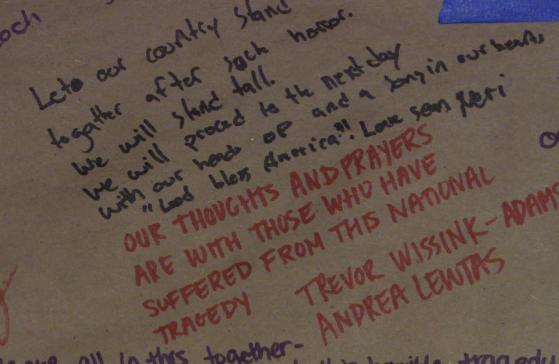 och
Lets our country stand
together after such horror.
We will stand tall.
We will proceed to the next day
with our heads up and a song in our hearts
"God bless America"! Love Sean
OUR THOUGHTS AND PRAYERS
ARE WITH THOSE WHO HAVE
SUFFERED FROM THIS NATIONAL
TRAGEDY TREVOR WISSINK-ADAMS
ANDREA LEWTAS
all in this together-
tragedy